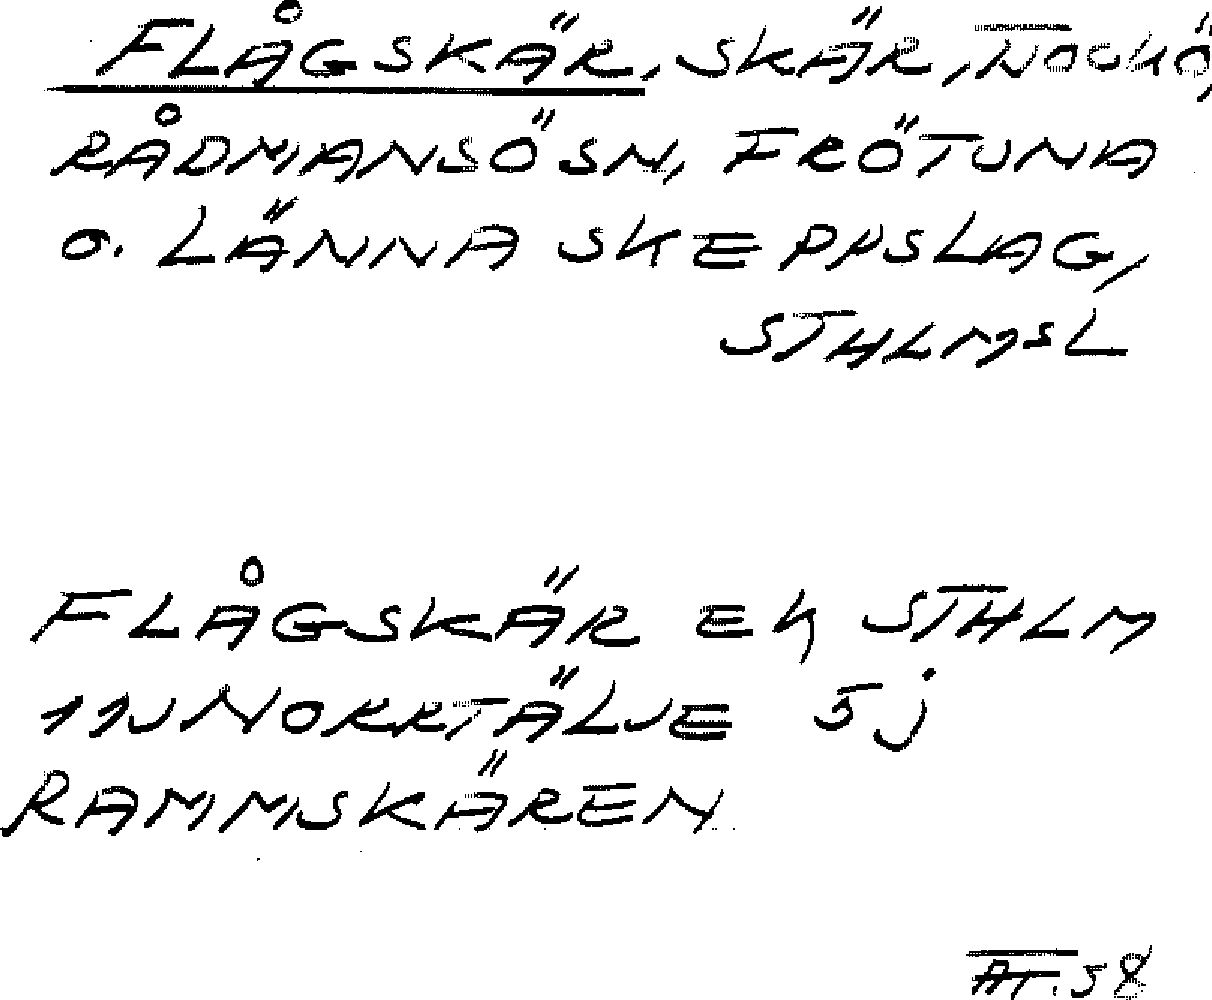 FLÅGSKÄR, SKÄR,
RÅDMANSÖ SN, FRÖTUNA
O. LÄNNA SKEPPSLAG,
STHLMSL
FLÅGSKÄR EK STHLM
11J NORRTÄLJE 5j
RAMMSKÄREN
58